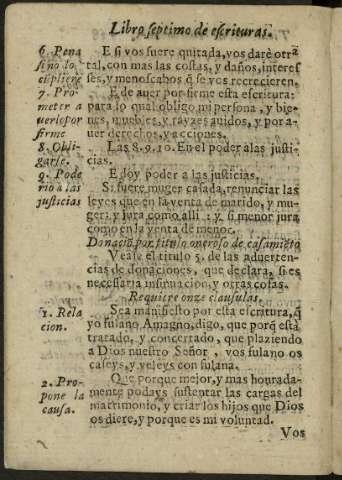 Libro septimo de escrituras.
6. Pena
si no lo
cũpliere
7. Pro-
meter a
uerlo por
firme
8. Obli-
garse.
9. Pode
rio a las
justicias
E si vos fuere quitada, vos darè otra
tal, con mas las costas, y daños, interes
ses, y menoscabos q̃ se vos recrecieren.
E de auer por firme esta escritura:
para lo qual obligo mi persona, y bie-
nes, muebles, y rayzes auidos, y por a-
uer derechos, y acciones.
Las 8. 9. 10. En el poder a las justi-
cias.
E doy poder a las justicias.
Si fuere muger casada, renunciar las
leyes que en la venta de marido, y mu-
ger: y jura como alli: y si menor jura
como en la venta de menor.
Donaciõ por titulo oneroso de casamiẽto
Vease el titulo 5. de las aduerten-
cias de donaciones, que declara, si es
necessaria insinuacion, y otras cosas.
Requiere onze clausulas.
1. Rela
cion.
Sea manifiesto por esta escritura, q̃
yo fulano Amagno, digo, que porq̃ està
tratado, y concertado, que plaziendo
a Dios nuestro Señor, vos fulano os
caseys, y veleys con fulana.
2. Pro-
pone la
causa.
Que porque mejor, y mas honrada-
mente podays sustentar las cargas del
matrimonio, y criar los hijos que Dios
os diere, y porque es mi voluntad.
Vos